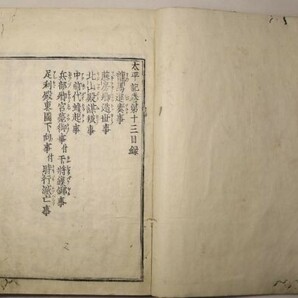 太平記巻第十三目録
龍馬進奏事
藤房卿遁世事
北山殿謀叛事
中前代蜂起事
兵部卿宮薨御事 付 干将鏌鋣事
足利殿東國下向事 付 時行滅亡事